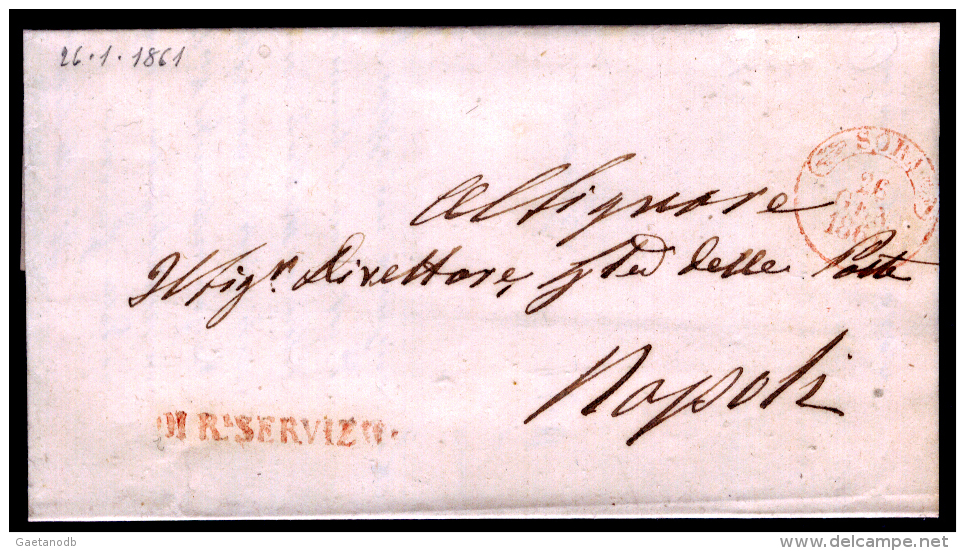 26·1·1861
SORA
26
GEN
1861
Al Signore
Il Sigr. Direttore, Gle delle Poste
Napoli
DI RL SERVIZIO.
Gaetanodb
delcampe.net